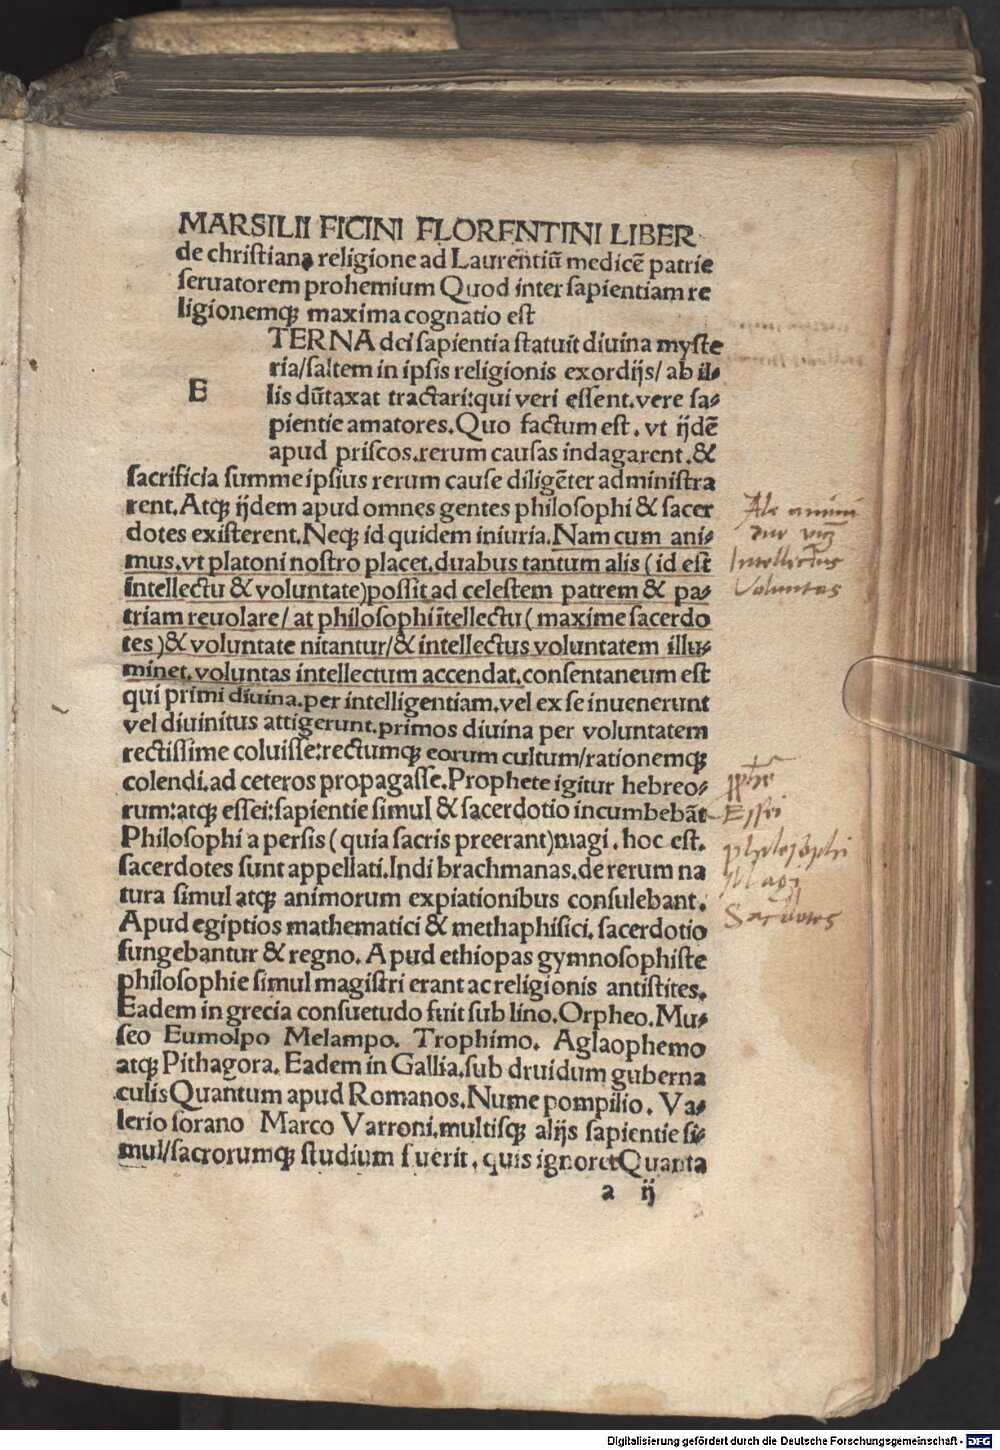 MARSILII FICINI FLORENTINI LIBER
de christiana religione ad Laurentiū medicē patrie
seruatorem prohemium Quod inter sapientiam re
ligionemqꝫ maxima cognatio est
TERNA dei sapientia statuit diuina myste
ria/saltem in ipsis religionis exordijs/ ab il-
E
lis dūtaxat tractari:qui veri essent.vere sa-
pientie amatores.Quo factum est. vt ijdē
apud priscos.rerum causas indagarent.&
sacrificia summe ipsius rerum cause diligēter administra
rent.Atqꝫ ijdem apud omnes gentes philosophi & sacer
dotes existerent.Neqꝫ id quidem iniuria.Nam cum ani-
mus.vt platoni nostro placet.duabus tantum alis (id est
intellectu & voluntate)possit ad celestem patrem & pa-
triam reuolare/ at philosophi ītellectu (maxime sacerdo
tes)& voluntate nitantur/& intellectus voluntatem illu-
minet.voluntas intellectum accendat.consentaneum est
qui primi diuina.per intelligentiam.vel ex se inuenerunt
vel diuinitus attigerunt.primos diuina per voluntatem
rectissime coluisse:rectumqꝫ eorum cultum/rationemqꝫ
colendi.ad ceteros propagasse.Prophete igitur hebreo-
rum:atqꝫ essei:sapientie simul & sacerdotio incumbebāt
Philosophi a persis (quia sacris preerant)magi.hoc est.
sacerdotes sunt appellati.Indi brachmanas.de rerum na
tura simul atqꝫ animorum expiationibus consulebant.
Apud egiptios mathematici & methaphisici.sacerdotio
fungebantur & regno. Apud ethiopas gymnosophiste
philosophie simul magistri erant ac religionis antistites.
Eadem in grecia consuetudo fuit sub lino.Orpheo.Mu-
seo Eumolpo Melampo. Trophimo. Aglaophemo
atqꝫ Pithagora. Eadem in Gallia.sub druidum guberna
culis Quantum apud Romanos.Nume pompilio. Va-
lerio sorano Marco Varroni.multisqꝫ alijs sapientie si-
mul/sacrorumqꝫ studium fuerit. quis ignoret Quanta
a ij
Ale animi
due
Intellectus
Voluntas
Essei
philosophi
Magi
Sacerdotes
Digitalisierung gefördert durch die Deutsche Forschungsgemeinschaft - DFG